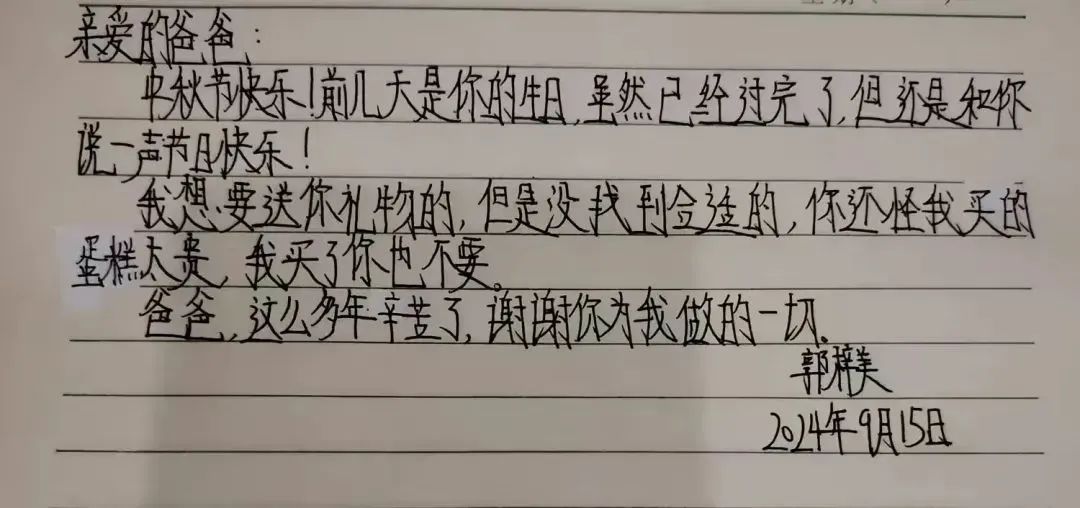 亲爱的爸爸：
中秋节快乐！前几天是你的生日，虽然已经过完了，但还是和你
说一声节日快乐！
我想要送你礼物的，但是没找到合适的，你还怪我买的
蛋糕太贵，我买了你也不要。
爸爸，这么多年辛苦了，谢谢你为我做的一切。
郭梓美
2024年9月15日